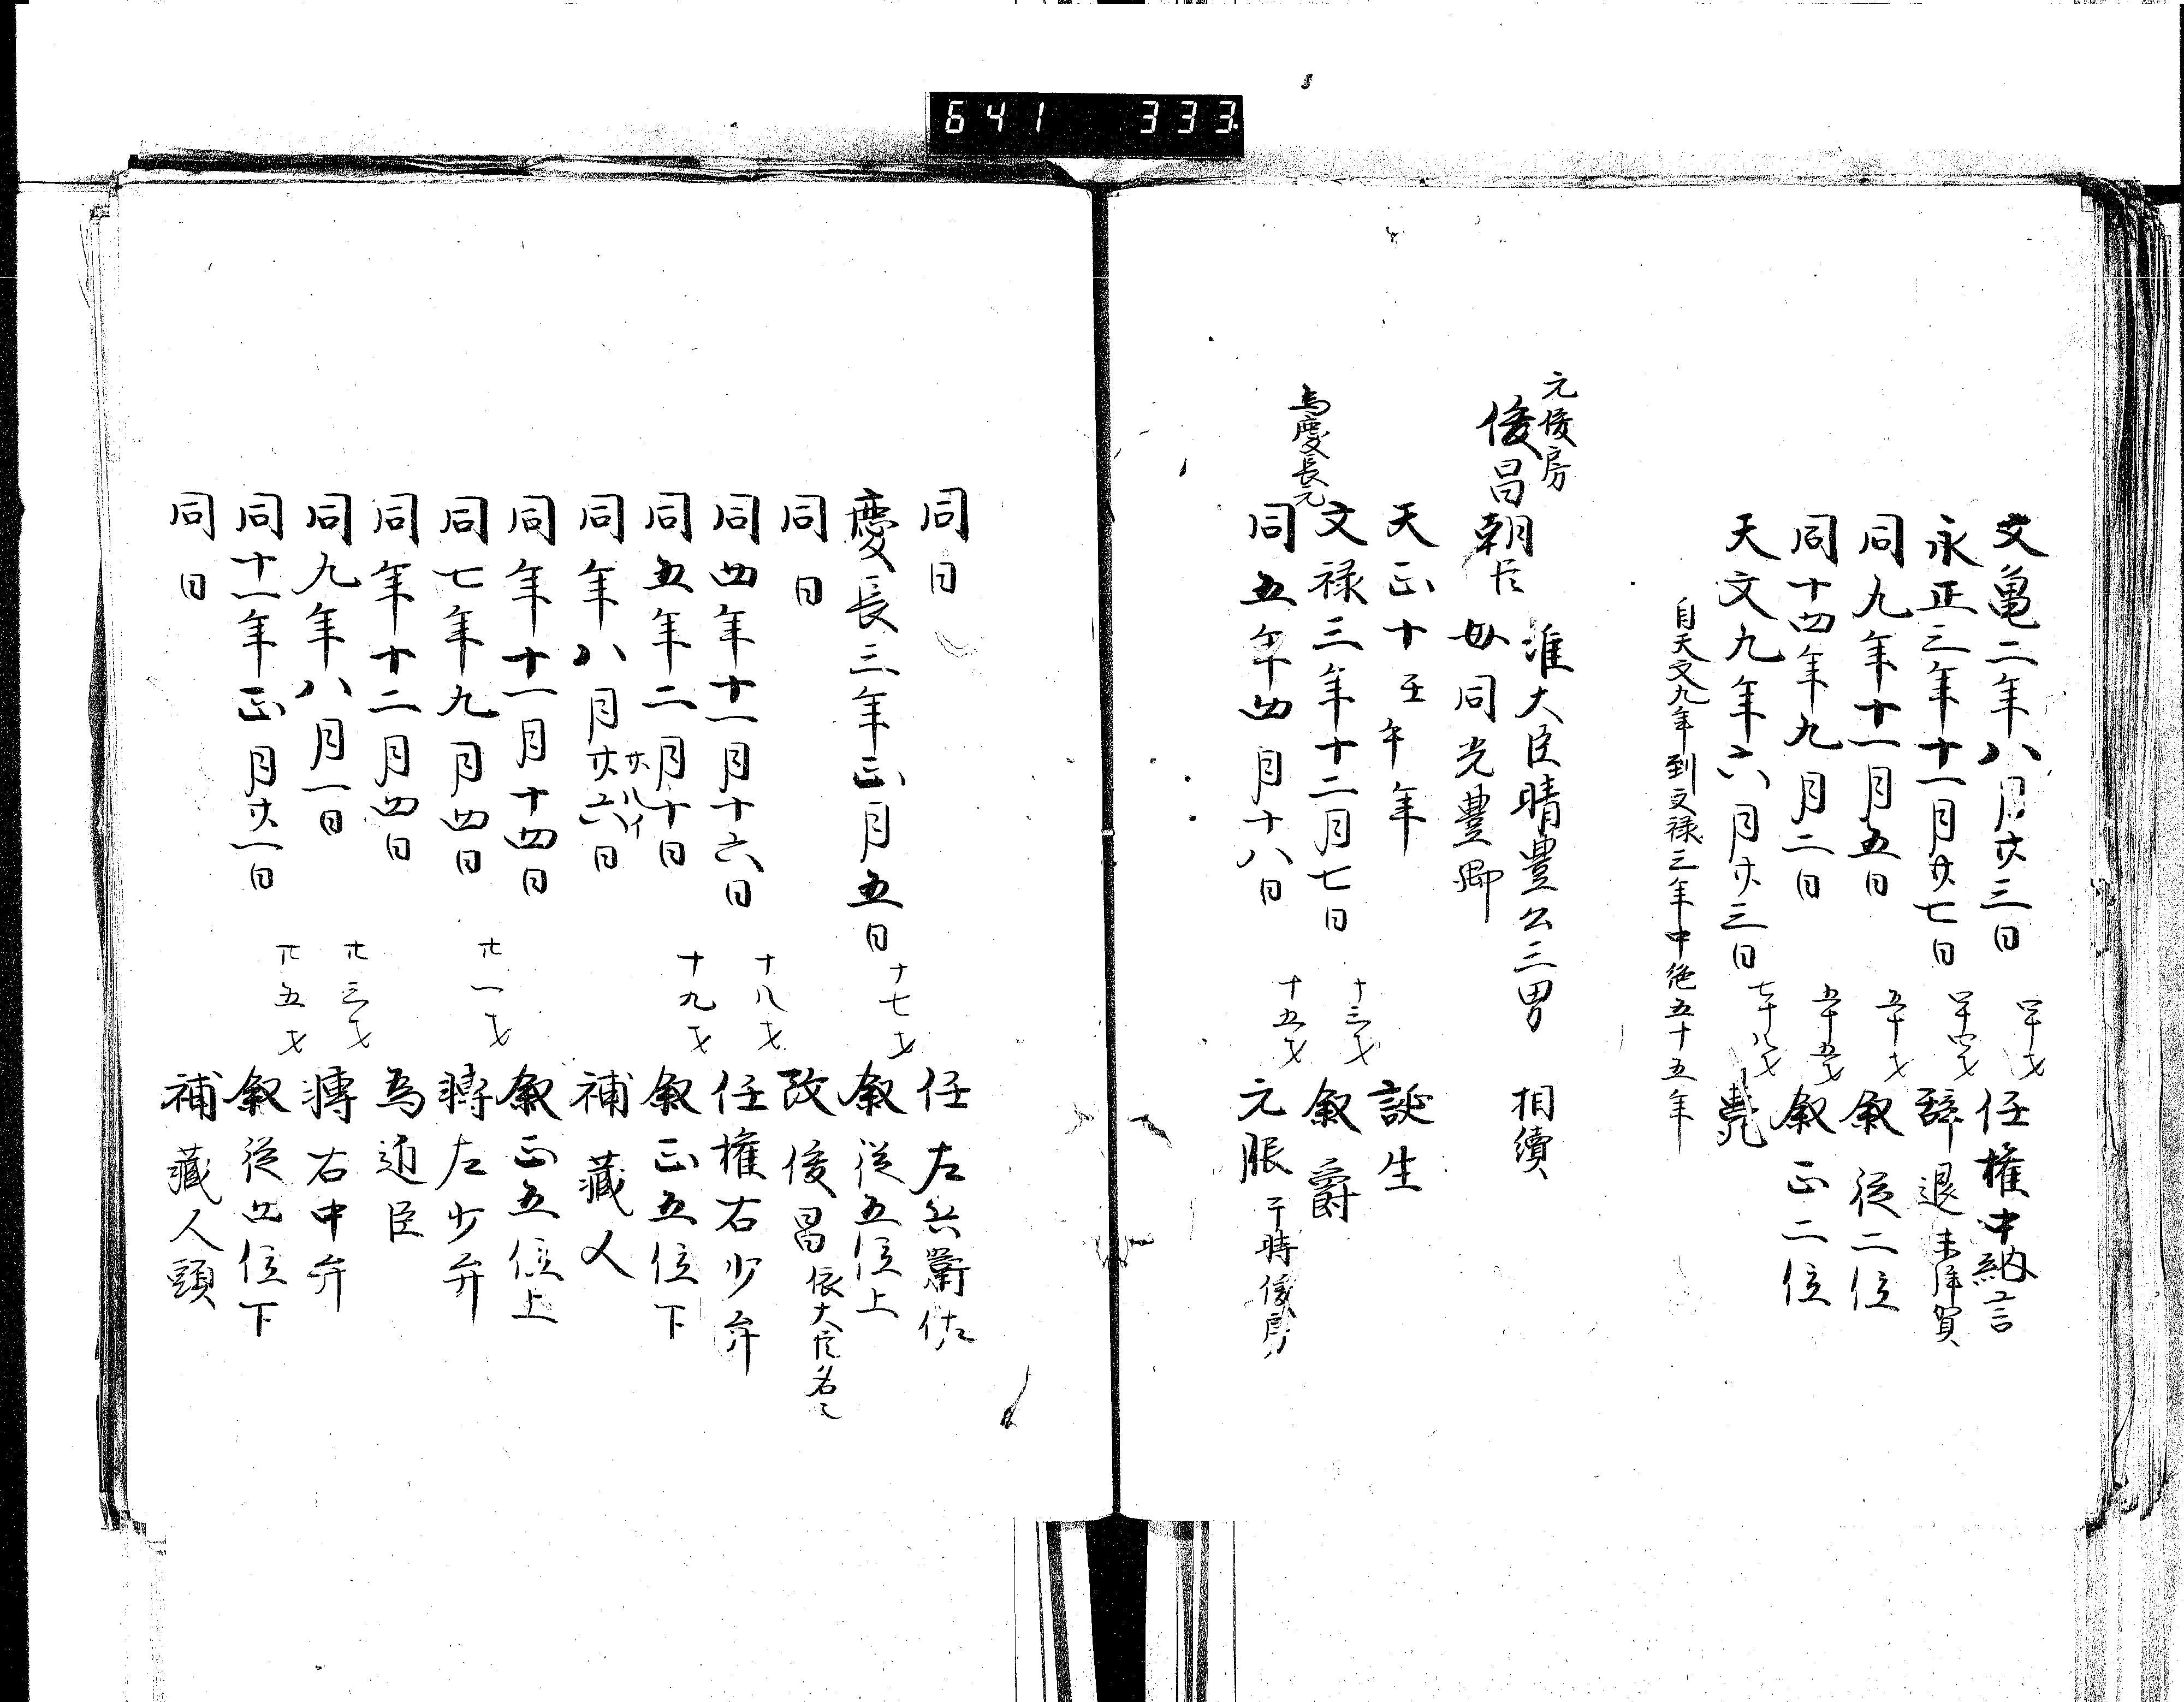 641 333
文亀二年八月廿三日 四十才 任權中納言
永正三年十一月廿七日 四十四才 辞退 未拝賀
同九年十一月五日 五十才 叙従二位
同十四年九月二日 五十五才 叙正二位
天文九年六月廿三日 七十八才 薨
自天文九年到文禄三年中絶五十五年
元俊房
俊昌朝臣 准大臣晴豊公三男 相續
母同光豊卿
天正十壬午年 誕生
文禄三年十二月七日 十三才 叙爵
為慶長元
同五年四月十八日 十五才 元服 于時俊房
同日 任左兵衛佐
慶長三年正月五日 十七才 叙従五位上
同日 改俊昌 依大臣名也
同四年十一月十六日 十八才 任權右少弁
同五年二月十日 十九才 叙正五位下
廿八イ
同年八月廿六日 補蔵人
同年十一月十四日 叙正五位上
同七年九月四日 廿一才 轉左少弁
同年十二月四日 為迺臣
同九年八月一日 廿三才 轉右中弁
同十一年正月廿一日 廿五才 叙従四位下
同日 補藏人頭